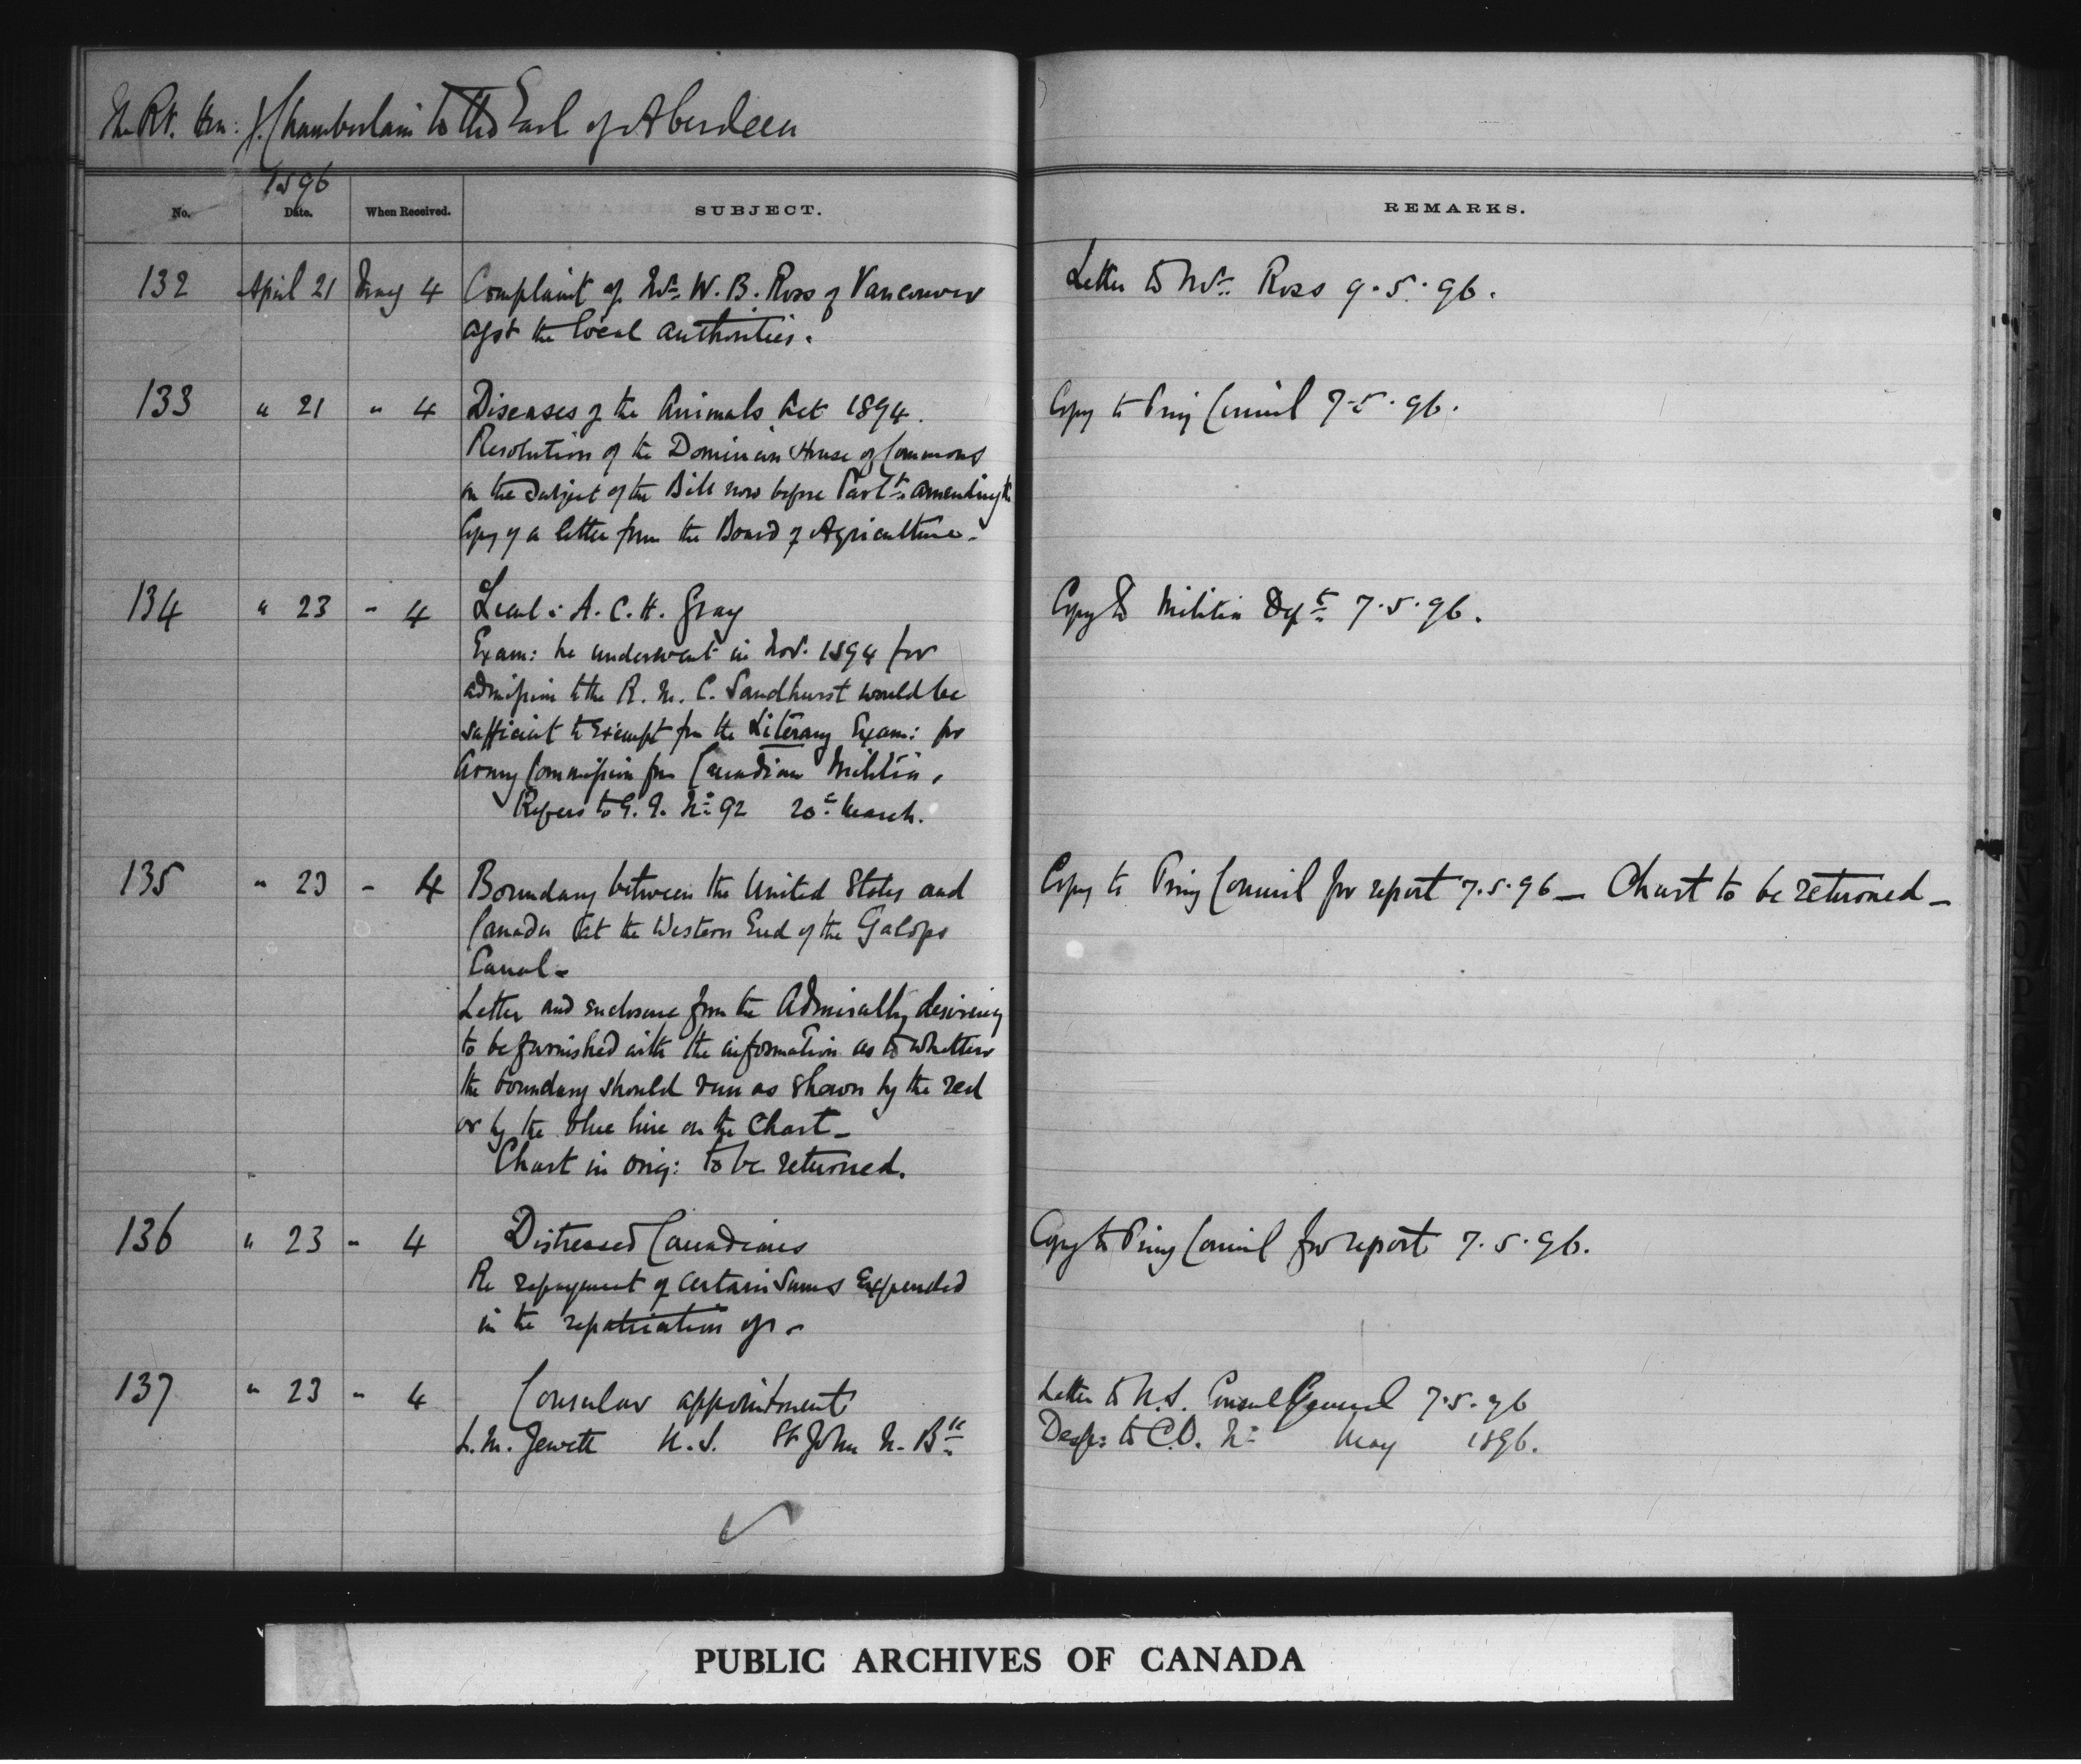 The Rt. Hon: J. Chamberlain to the Earl of Aberdeen
1896
No. Date. When Received. SUBJECT. REMARKS.
132 April 21 May 4 Complaint of Mr. W. B. Ross of Vancouver Letter to Mr. Ross 9.5.96.
agst the local authorities.
133 " 21 " 4 Diseases of the Animals Act 1894. Copy to Privy Council 7.5.96.
Resolution of the Dominion House of Commons
on the subject of the Bill now before Parlt. amending the
Copy of a letter from the Board of Agriculture.
134 " 23 " 4 Lieut: A. C. H. Gray Copy to Militia Dept 7.5.96.
Exam: he underwent in Nov. 1894 for
admission to the R. M. C. Sandhurst would be
sufficient to exempt fm the Literary Exam: for
Army Commission fm Canadian Militia.
Refers to G. G. No. 92 20th March.
135 " 23 " 4 Boundary between the United States and Copy to Privy Council for report 7.5.96 — Chart to be returned —
Canada at the Western End of the Galops
Canal —
Letter and enclosure from the Admiralty desiring
to be furnished with the information as to whether
the boundary should run as shown by the red
or by the blue line on the Chart —
Chart in orig: to be returned.
136 " 23 " 4 Distressed Canadians Copy to Privy Council for report 7.5.96.
Re repayment of certain sums expended
in the repatriation of —
137 " 23 " 4 Consular appointment Letter to U.S. Consul General 7.5.96
L. M. Jewett U. S. St John N. Bk. Desp: to C.O. No. May 1896.
PUBLIC ARCHIVES OF CANADA